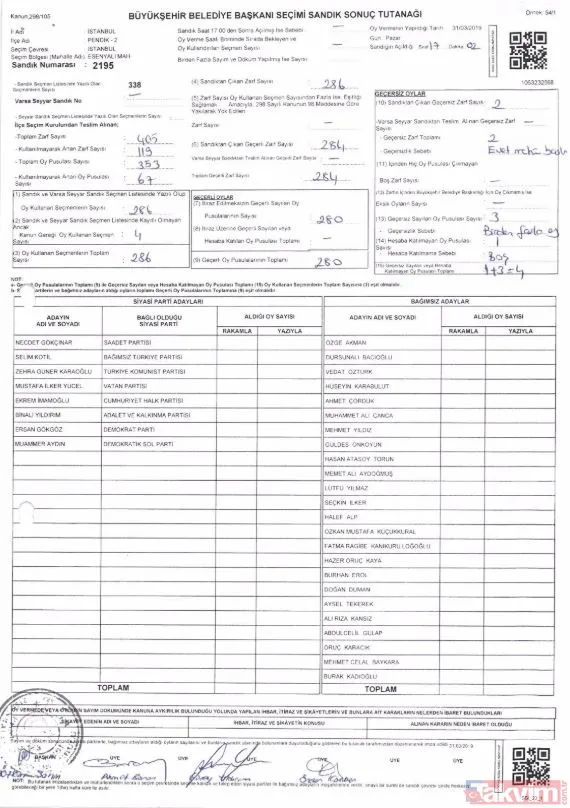 Kanun:298/105
BÜYÜKŞEHİR BELEDİYE BAŞKANI SEÇİMİ SANDIK SONUÇ TUTANAĞI
Örnek: 54/1
İl Adı : İSTANBUL
İlçe Adı : PENDİK - 2
Seçim Çevresi : İSTANBUL
Seçim Bölgesi (Muhalle Adı): ESENYALI MAH
Sandık Numarası : 2195
Sandık Saat 17.00 den Sonra Açılmış İse Sebebi :
Oy Verme Saati Bitiminde Sırada Bekleyen ve
Oy Kullandırılan Seçmen Sayısı :
Birden Fazla Sayım ve Döküm Yapılmış İse Sayısı :
Oy Vermenin Yapıldığı Tarih : 31/03/2019
Gün : Pazar
Sandığın Açıldığı Saat 17 Dakika 02
1053232068
- Sandık Seçmen Listesinde Yazılı Olan Seçmenlerin Sayısı : 338
Varsa Seyyar Sandık No :
- Seyyar Sandık Seçmen Listesinde Yazılı Olan Seçmenlerin Sayısı :
İlçe Seçim Kurulundan Teslim Alınan;
-Toplam Zarf Sayısı : 405
-Kullanılmayarak Artan Zarf Sayısı : 119
-Toplam Oy Pusulası Sayısı : 353
-Kullanılmayarak Artan Oy Pusulası Sayısı : 67
(1) Sandık ve Varsa Seyyar Sandık Seçmen Listesinde Yazılı Olup
Oy Kullanan Seçmenlerin Sayısı : 286
(2) Sandık ve Seyyar Sandık Seçmen Listesinde Kayıtlı Olmayan Ancak
Kanun Gereği Oy Kullanan Seçmen Sayısı : 4
(3) Oy Kullanan Seçmenlerin Toplam Sayısı : 286
(4) Sandıktan Çıkan Zarf Sayısı : 286
(5) Zarf Sayısı Oy Kullanan Seçmen Sayısından Fazla İse, Eşitliği Sağlamak Amacıyla, 298 Sayılı Kanunun 98 Maddesine Göre Yakılarak Yok Edilen
Zarf Sayısı :
(6) Sandıktan Çıkan Geçerli Zarf Sayısı : 284
Varsa Seyyar Sandıktan Teslim Alınan Geçerli Zarf Sayısı :
Toplam Geçerli Zarf Sayısı : 284
GEÇERLİ OYLAR
(7) İtiraz Edilmeksizin Geçerli Sayılan Oy
Pusulalarının Sayısı : 280
(8) İtiraz Üzerine Geçerli Sayılan veya
Hesaba Katılan Oy Pusulası Toplamı :
(9) Geçerli Oy Pusulası Toplamı : 280
GEÇERSİZ OYLAR
(10) Sandıktan Çıkan Geçersiz Zarf Sayısı : 2
-Varsa Seyyar Sandıktan Teslim Alınan Geçersiz Zarf Sayısı :
- Geçersiz Zarf Toplamı : 2
- Geçersizlik Sebebi : Evet
(11) İçinden Hiç Oy Pusulası Çıkmayan
Boş Zarf Sayısı :
Eksik Oyların Sayısı :
(13) Geçersiz Sayılan Oy Pusulası Sayısı : 3
- Geçersizlik Sebebi : Birden fazla oy
(14) Hesaba Katılmayan Oy Pusulası Sayısı : 1
- Hesaba Katılmama Sebebi : Boş
(15) Geçersiz Sayılan veya Hesaba Katılmayan Oy Pusulası Toplamı : 1+3=4
NOT:
SİYASİ PARTİ ADAYLARI
ADAYIN ADI VE SOYADI
BAĞLI OLDUĞU SİYASİ PARTİ
ALDIĞI OY SAYISI
RAKAMLA YAZIYLA
NECDET GÖKÇINAR SAADET PARTİSİ
SELİM KOTİL BAĞIMSIZ TÜRKİYE PARTİSİ
ZEHRA GÜNER KARAOĞLU TÜRKİYE KOMÜNİST PARTİSİ
MUSTAFA İLKER YÜCEL VATAN PARTİSİ
EKREM İMAMOĞLU CUMHURİYET HALK PARTİSİ
BİNALİ YILDIRIM ADALET VE KALKINMA PARTİSİ
ERSAN GÖKGÖZ DEMOKRAT PARTİ
MUAMMER AYDIN DEMOKRATİK SOL PARTİ
TOPLAM
BAĞIMSIZ ADAYLAR
ADAYIN ADI VE SOYADI
ALDIĞI OY SAYISI
RAKAMLA YAZIYLA
ÖZGE AKMAN
DURSUNALİ BACIOĞLU
VEDAT ÖZTÜRK
HÜSEYİN KARABULUT
AHMET ÇÖRDÜK
MUHAMMET ALİ CANCA
MEHMET YILDIZ
GÜLDES ÖNKOYUN
HASAN ATASOY TORUN
MEMET ALİ AYDOĞMUŞ
LÜTFÜ YILMAZ
SEÇKİN İLKER
HALEF ALP
ÖZKAN MUSTAFA KÜÇÜKKURAL
FATMA RAGİBE KANIKURU LOĞOĞLU
HAZER ORUÇ KAYA
BURHAN EROL
DOĞAN DUMAN
AYSEL TEKEREK
ALİ RIZA KANSIZ
ABDULCELİL GÜLAP
ORUÇ KARACIK
MEHMET CELAL BAYKARA
BURAK KADIOĞLU
TOPLAM
OY VERMEDE VEYA OYLARIN SAYIM DÖKÜMÜNDE KANUNA AYKIRILIK BULUNDUĞU YOLUNDA YAPILAN İHBAR, İTİRAZ VE ŞİKAYETLERİN VE BUNLARA AİT KARARLARIN NELERDEN İBARET BULUNDUKLARI
ŞİKAYET EDENİN ADI VE SOYADI
İHBAR, İTİRAZ VE ŞİKAYETİN KONUSU
ALINAN KARARIN NEDEN İBARET OLDUĞU
31/03/2019
BAŞKAN ÜYE ÜYE ÜYE ÜYE
takvim.com.tr